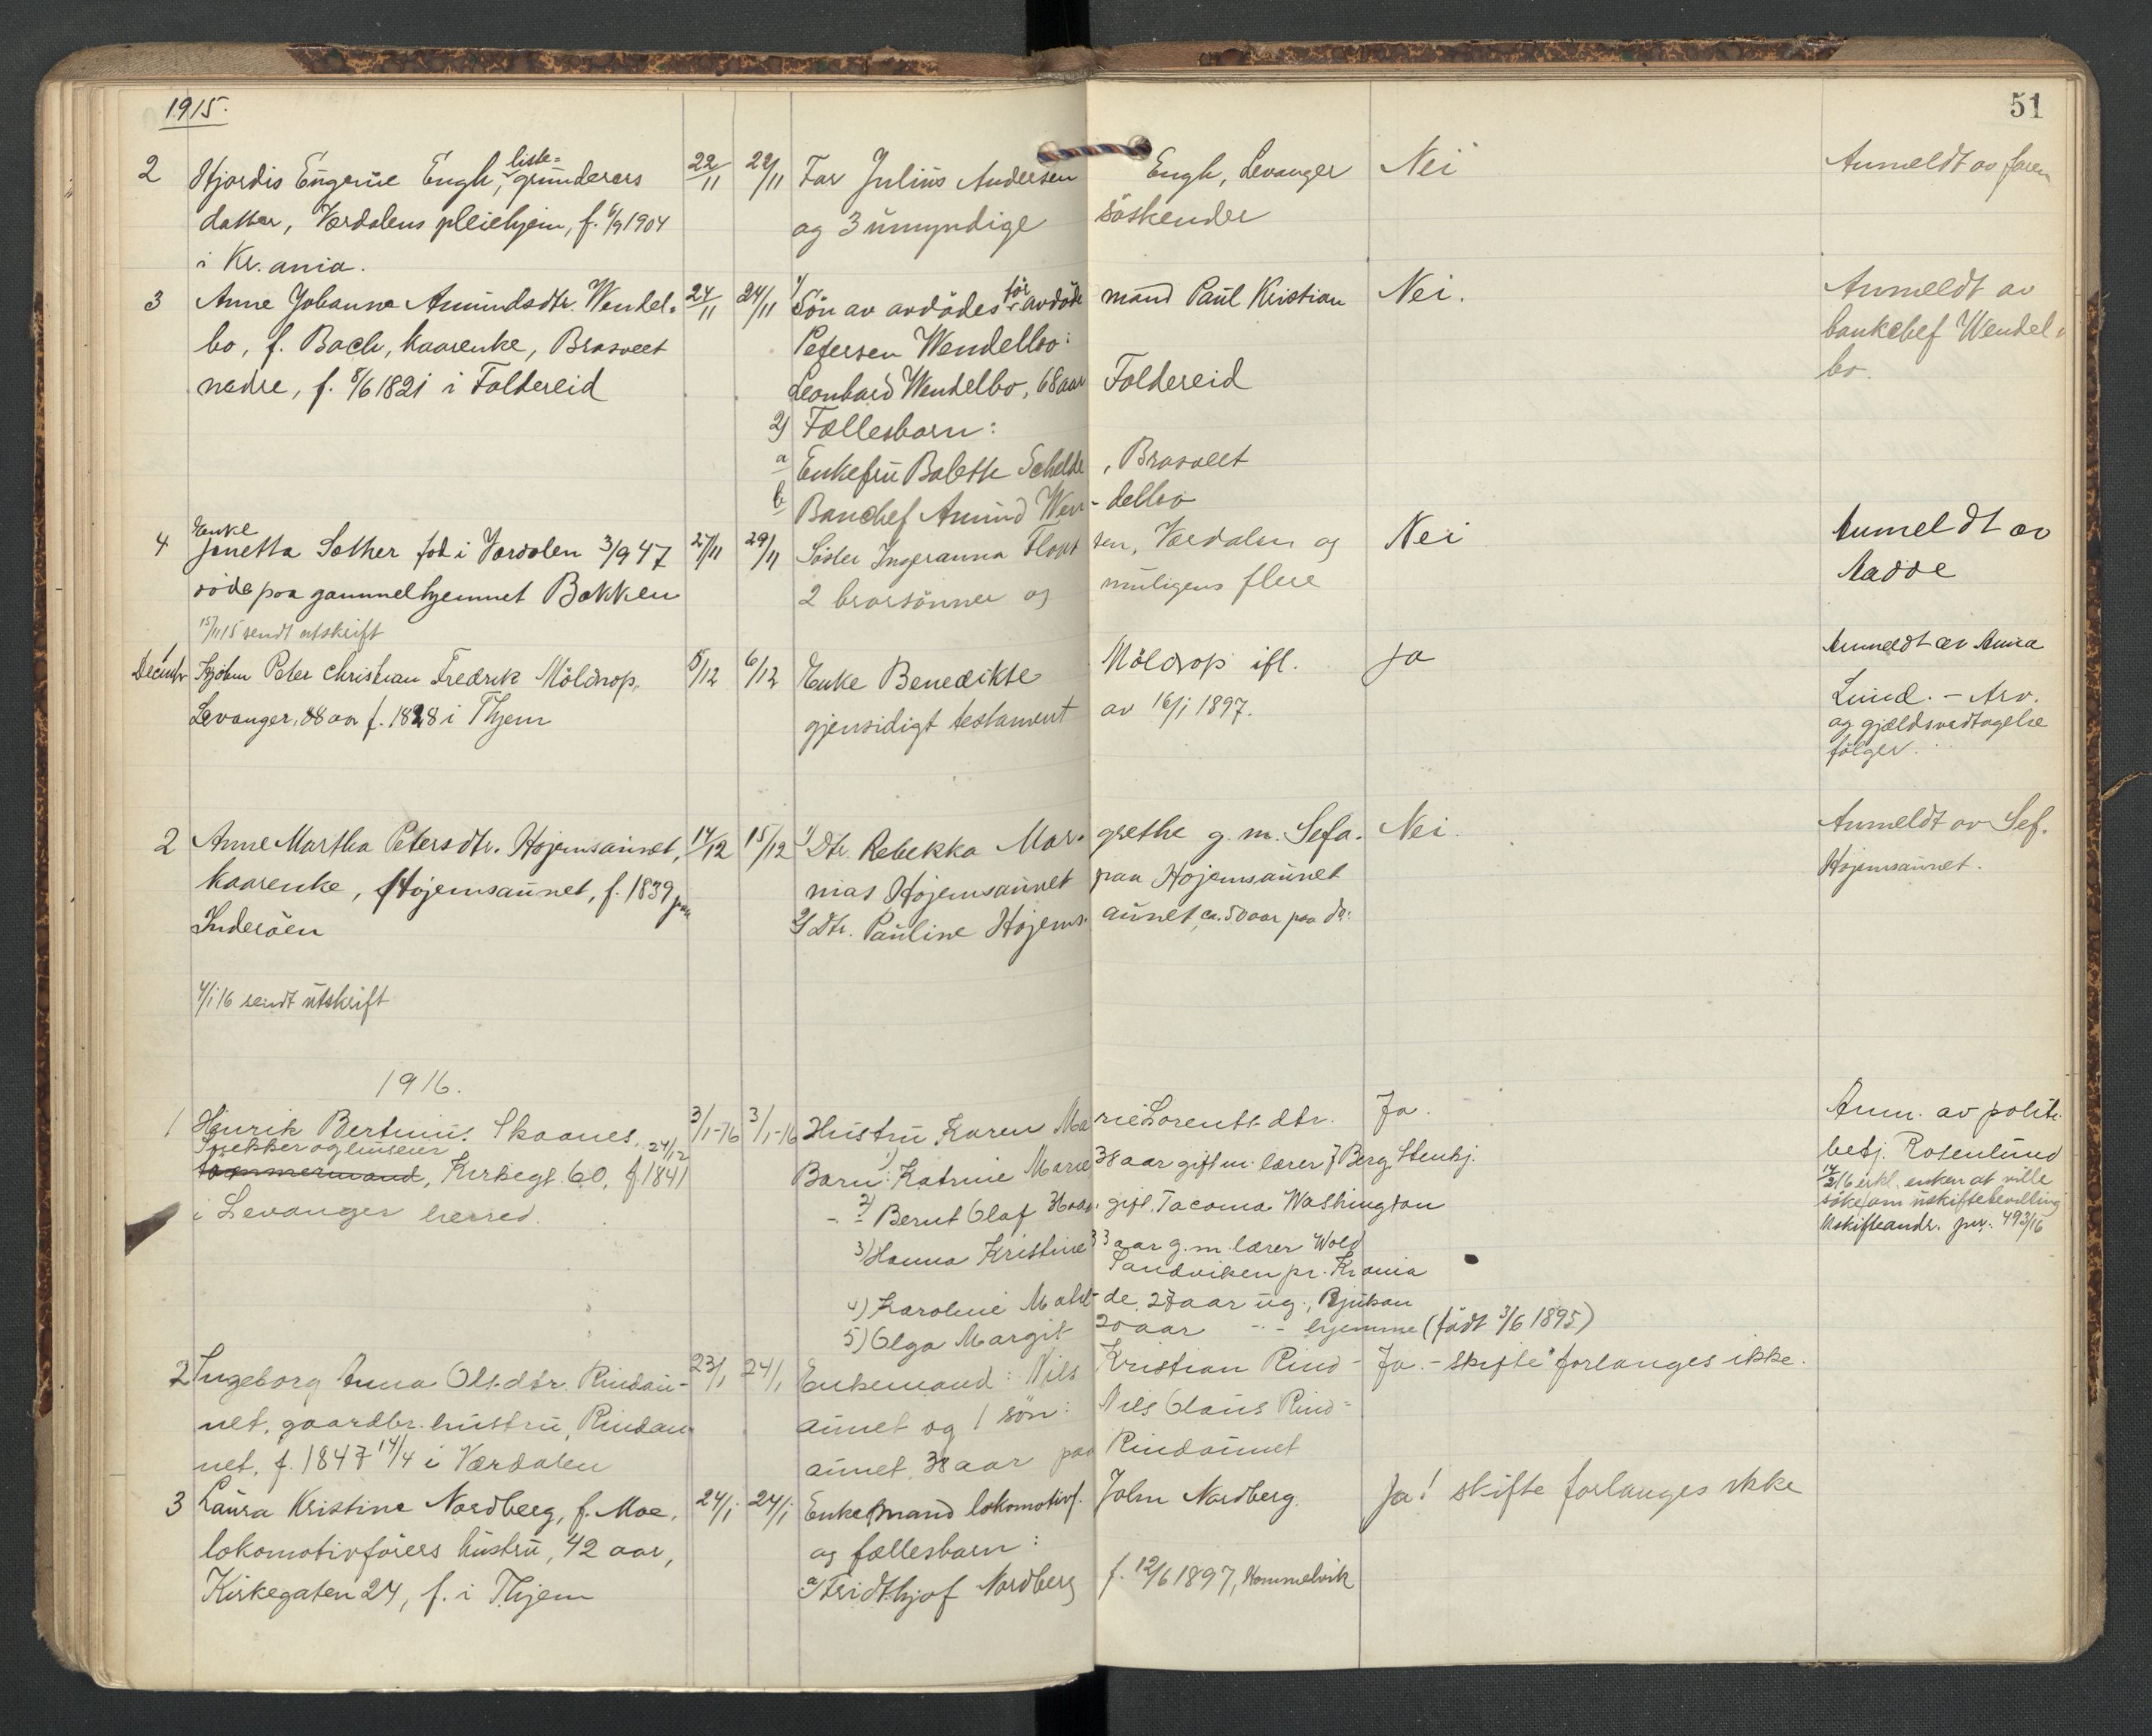 1915.
51
2 Hjørdis Eugenie Engh, liste= grunderers 22/11 22/11 Far Julius Andersen Engh, Levanger Nei Anmeldt av faren
datter, Værdalens pleiehjem, f. 6/9 1904 og 3 umyndige søskender
i Kr.ania.
3 Anne Johanna Amundsdtr. Wendel= 24/11 24/11 1/ Søn av avdødes før avdøde mand Paul Kristian Nei. Anmeldt av
bo, f. Bach, kaarenke, Brasveet Petersen Wendelbo: bankchef Wendel=
nedre, f. 8/6 1821 i Foldereid Leonhard Wendelbo, 68 aar Foldereid bo.
2) Fællesbarn:
a Enkefru Bolette Schelde, Brasveet
b Banchef Amund Wen-delbo
4 Enke Janetta Sother fød i Værdalen 3/9 47 27/11 29/11 Søster Ingeranna Floas ten, Værdalen og Nei Anmeldt av
døde paa gammelhjemmet Bakken 2 brorsønner og muligens flere
15/11 15 sendt utskrift
1 Decmbr Kjøbm Peter Christian Fredrik Möldrop, 5/12 6/12 Enke Benedikte Möldrop ifl. ja Anmeldt av Anna
Levanger, 88 aar f. 1828 i Thjem gjensidigt testament av 16/1 1897. Lund. - Arv.
og gjældsvedtagelse
følger.
2 Anne Martha Petersdtr. Højemsaunet, 14/12 15/12 1/ Dtr. Rebekka Mar=grethe g. m. Sefa= Nei. Anmeldt av Sef.
kaarenke, Højemsaunet, f. 1839 paa nias Højemsaunet paa Højemsaunet Højemsaunet.
Inderøen 2/ Dtr. Pauline Højems=aunet, ca. 50 aar paa do:
4/1 16 sendt utskrift
1916.
1 Henrik Bertinius Skaanes, 3/1-16 3/1-16 Hustru Karen Marie Lorents.dtr. Ja. Anm. av politi.
Snekker og eier 24/12 1) betj. Rosenlund
tømmermand, Kirkegt. 60, f. 1841 Barn: Katrine Marie 38 aar gift m. lærer J Berg, Stenkj. 14/2 16 erkl. enken at ville
i Levanger herred. -"- 2) Bernt Olaf 36 aar, gift, Tacoma Washington søke om uskiftebevilling
3) Hanna Kristine 33 aar g. m. lærer Wold Uskifteandr. pur. 493/16
Sandviken pr. Kr.ania
4) Karoline Mathil-de, 27 aar ug., Rjukan
5) Olga Margit 20 aar -"- hjemme (født 3/6 1895)
2 Ingeborg Anna Ols.dtr. Rindau- 23/1 24/1 Enkemand: Nils Kristian Rind- Ja. - skifte forlanges ikke.
net, gaardbr. hustru, Rindau= aunet og 1 søn: Nils Olaus Rind=
net, f. 1847 14/4 i Værdalen aunet, 38 aar paa Rindaunet
3 Laura Kristine Nordberg, f. Moe, 24/1 24/1 Enkemand lokomotivf. John Nordberg. Ja! skifte forlanges ikke
lokomotivførers hustru, 42 aar, og fællesbarn:
Kirkegaten 24, f. i Thjem a/ Fridthjof Nordberg f. 12/6 1897, Hommelvik